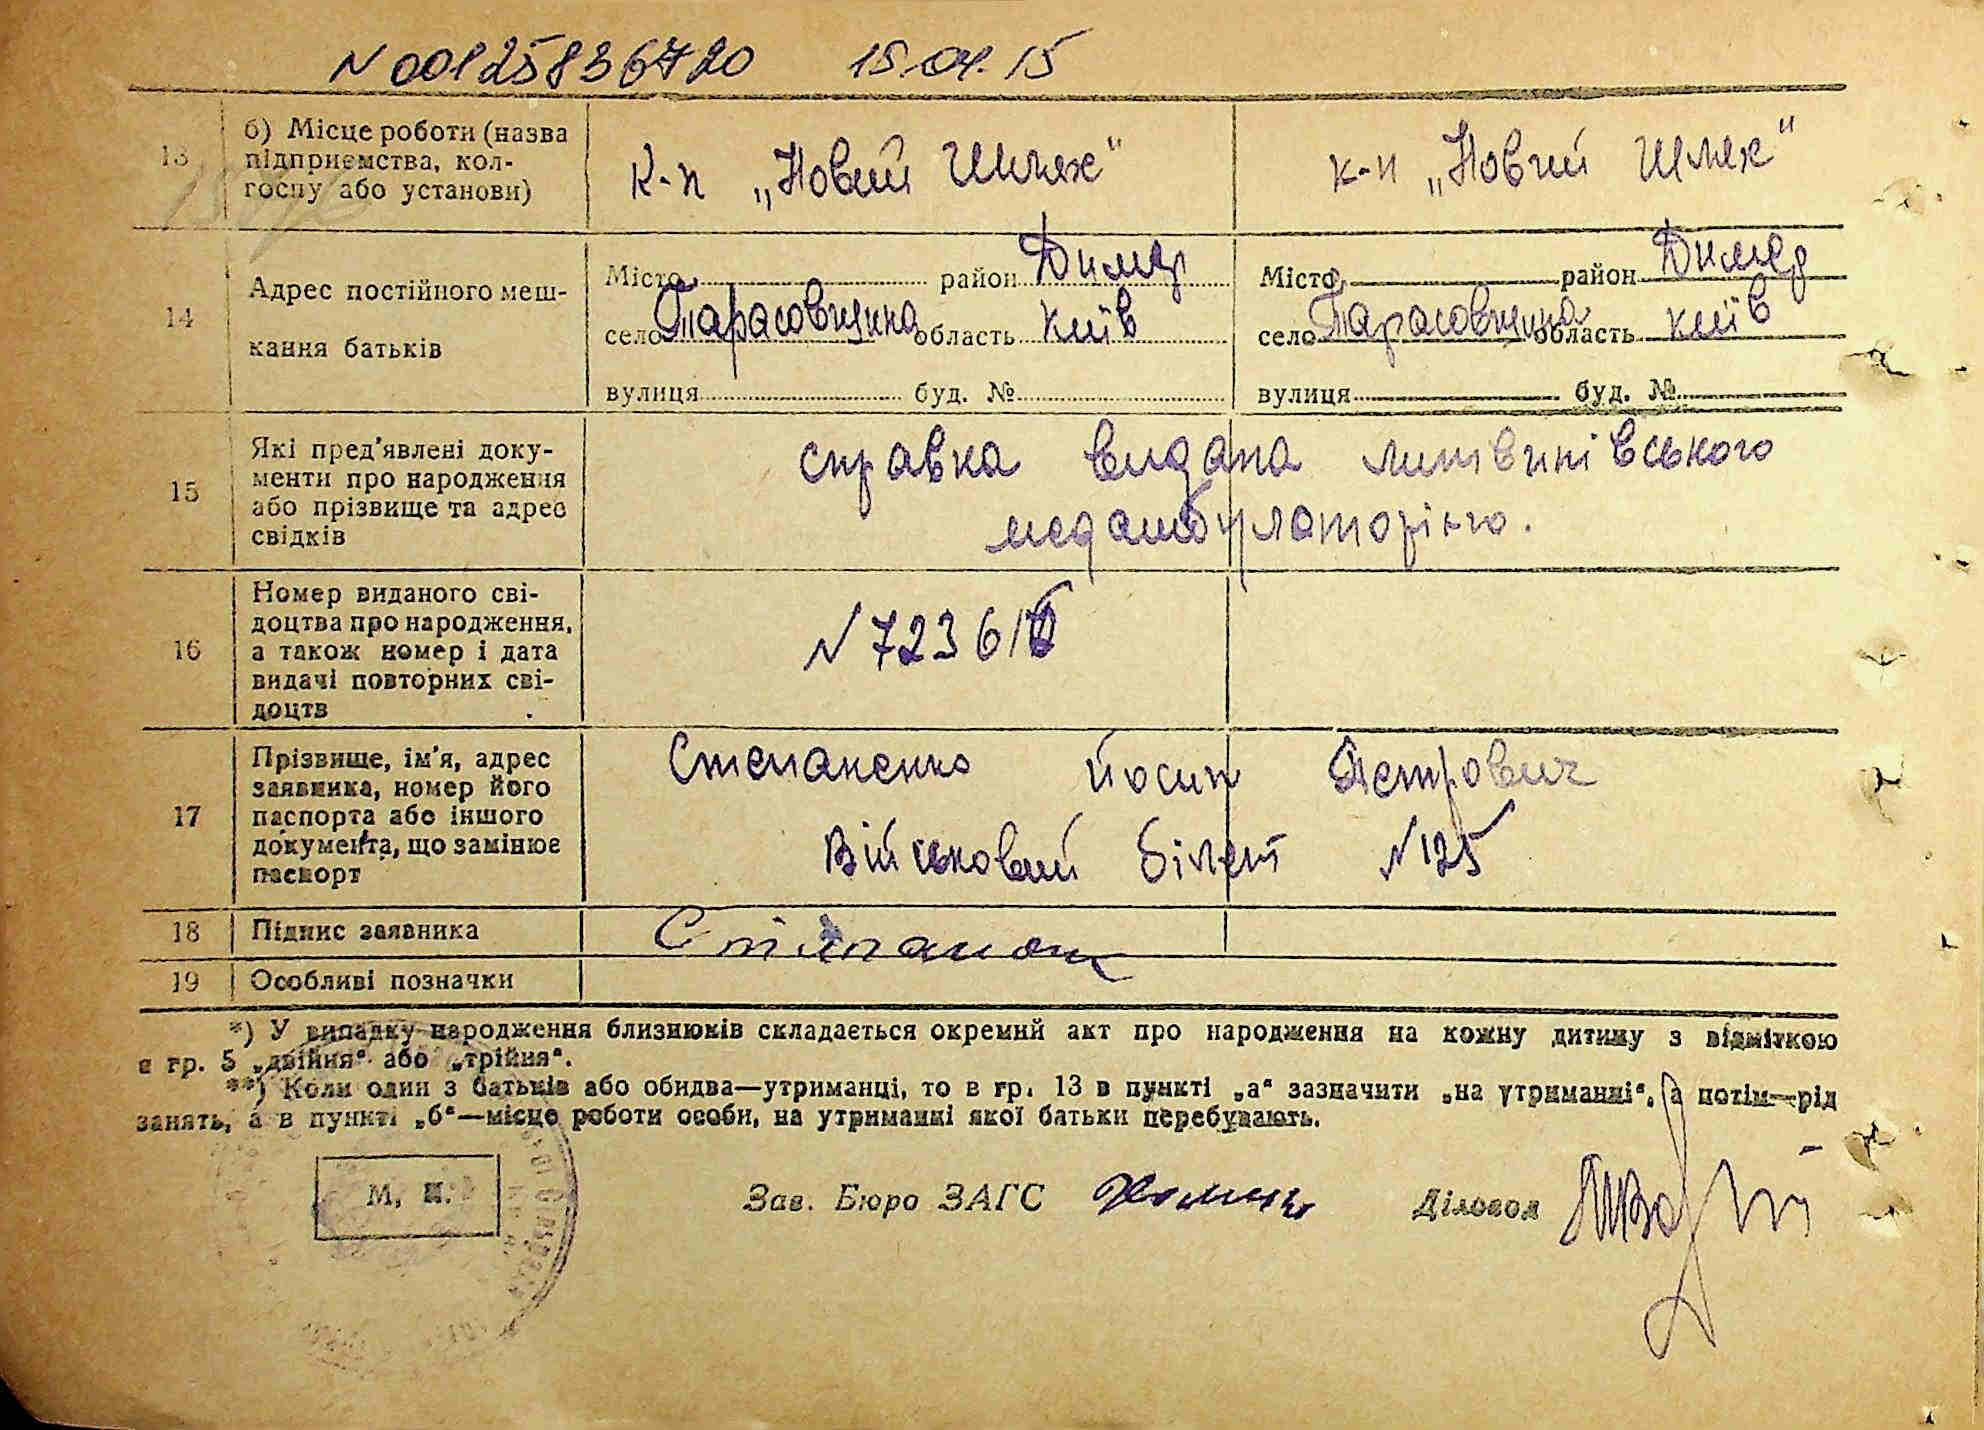 N 00125836720 15.04.15
13 б) Місце роботи (назва підприємства, колгоспу або установи)
к-п „Новий Шлях" к-п „Новий Шлях"
14 Адрес постійного мешкання батьків
Місто район Димер Місто район Димер
село Тарасовщина область Київ село Тарасовщина область Київ
вулиця буд. № вулиця буд. №
15 Які пред'явлені документи про народження або прізвище та адрес свідків
справка видана литвинівського
медамбулаторією.
16 Номер виданого свідоцтва про народження, а також номер і дата видачі повторних свідоцтв
N 7236
17 Прізвище, ім'я, адрес заявника, номер його паспорта або іншого документа, що замінює паспорт
Степаненко Йосип Петрович
Військовий білет N 125
18 Підпис заявника
19 Особливі позначки
*) У випадку народження близнюків складається окремий акт про народження на кожну дитину з відміткою
в гр. 5 „двійня" або „трійня".
**) Коли один з батьків або обидва—утриманці, то в гр. 13 в пункті „а" зазначити „на утриманні", а потім—рід
занять, а в пункті „б"—місце роботи особи, на утриманні якої батьки перебувають.
М. П. Зав. Бюро ЗАГС Діловод